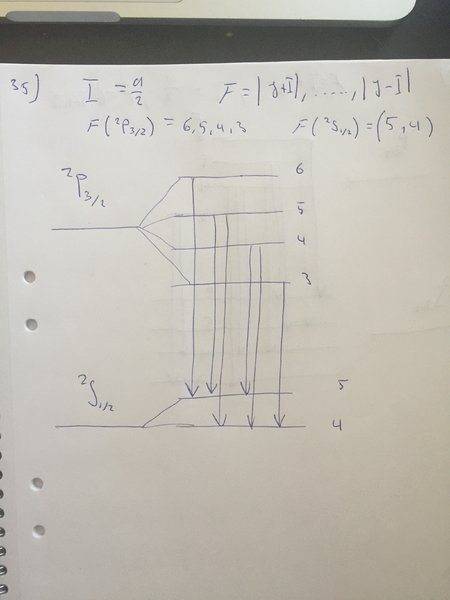 35) I = 9/2 F = |J+I|, ....., |J-I|
F(²P3/2) = 6,5,4,3 F(²S1/2) = (5,4)
6
²P3/2
5
4
3
²S1/2
5
4